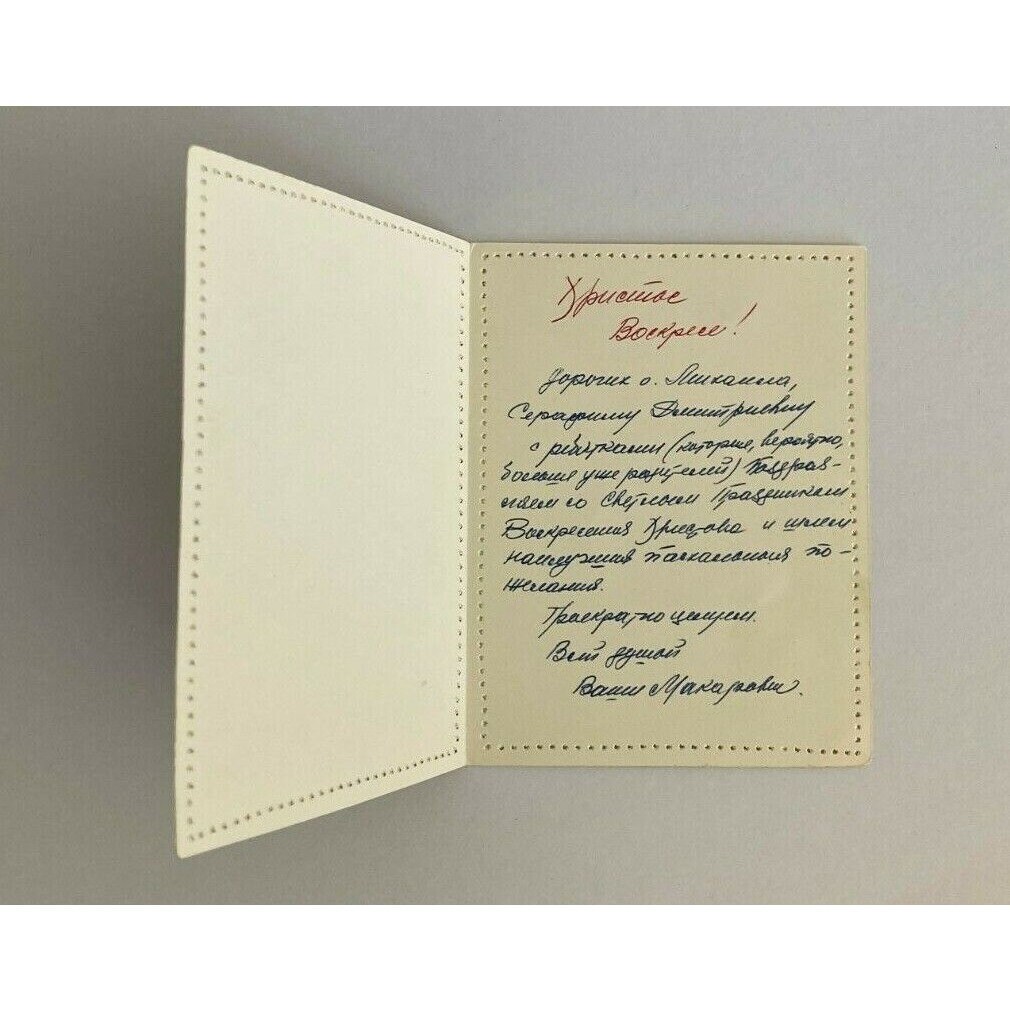 Христос
Воскресе!
Дорогих о. Михаила,
Серафиму Дмитриевну
с ребятками (которые, вероятно,
больше уже родителей) поздрав-
ляем со Светлым Праздником
Воскресения Христова и шлем
наилучшия пасхальныя по-
желания.
Троекратно целуем.
Всей душой
Ваши Макаровы.